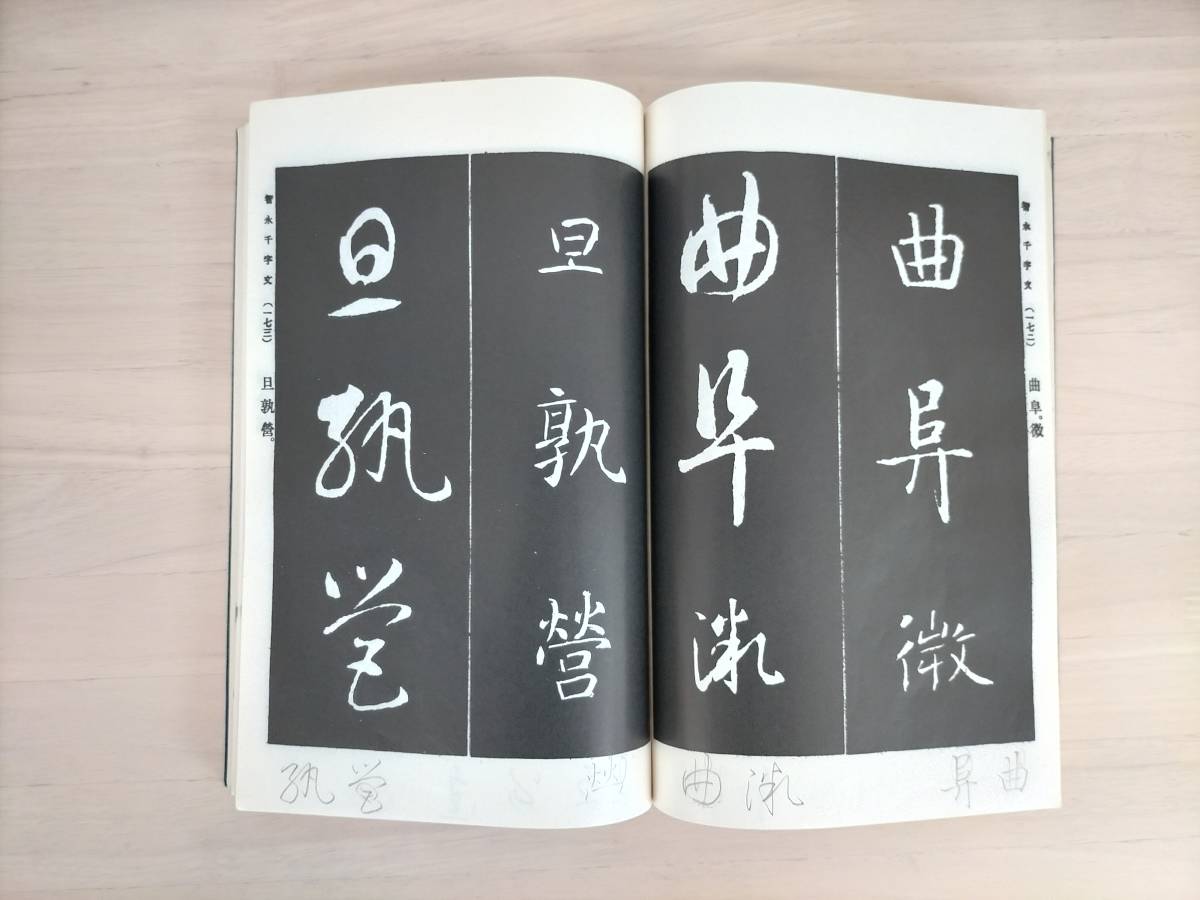 智永千字文（一七二） 曲阜。微
曲阜微
曲阜微
智永千字文（一七三） 旦孰營。
旦孰營
旦孰營
曲